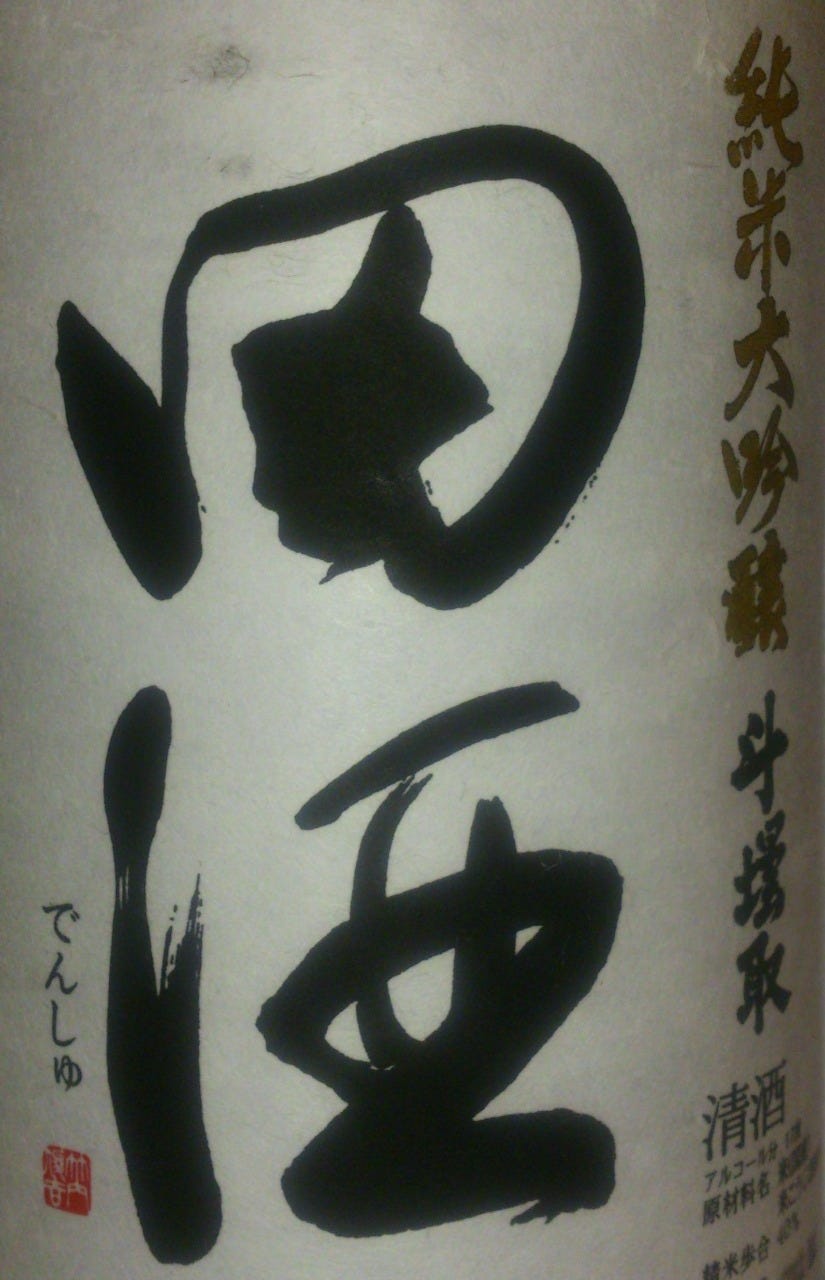 純米大吟醸 斗壜取
田酒
でんしゅ
清酒
アルコール分
原材料名
精米歩合 40%